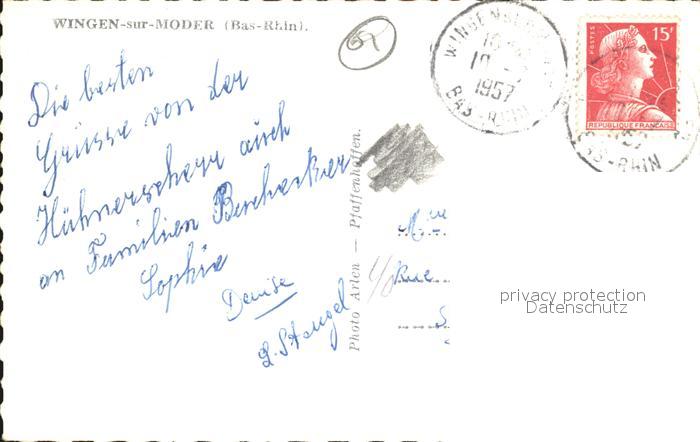 WINGEN-sur-MODER (Bas-Rhin).
67
Die besten
Grüsse von der
Hühnerscherr auch
an Familien
Sophie
Denise
L. Stengel
Photo Arlen — Pfaffenhoffen.
WINGEN
10
1957
BAS-RHIN
POSTES
15F
REPUBLIQUE FRANÇAISE
BAS-RHIN
Mme
Rue
S
privacy protection
Datenschutz